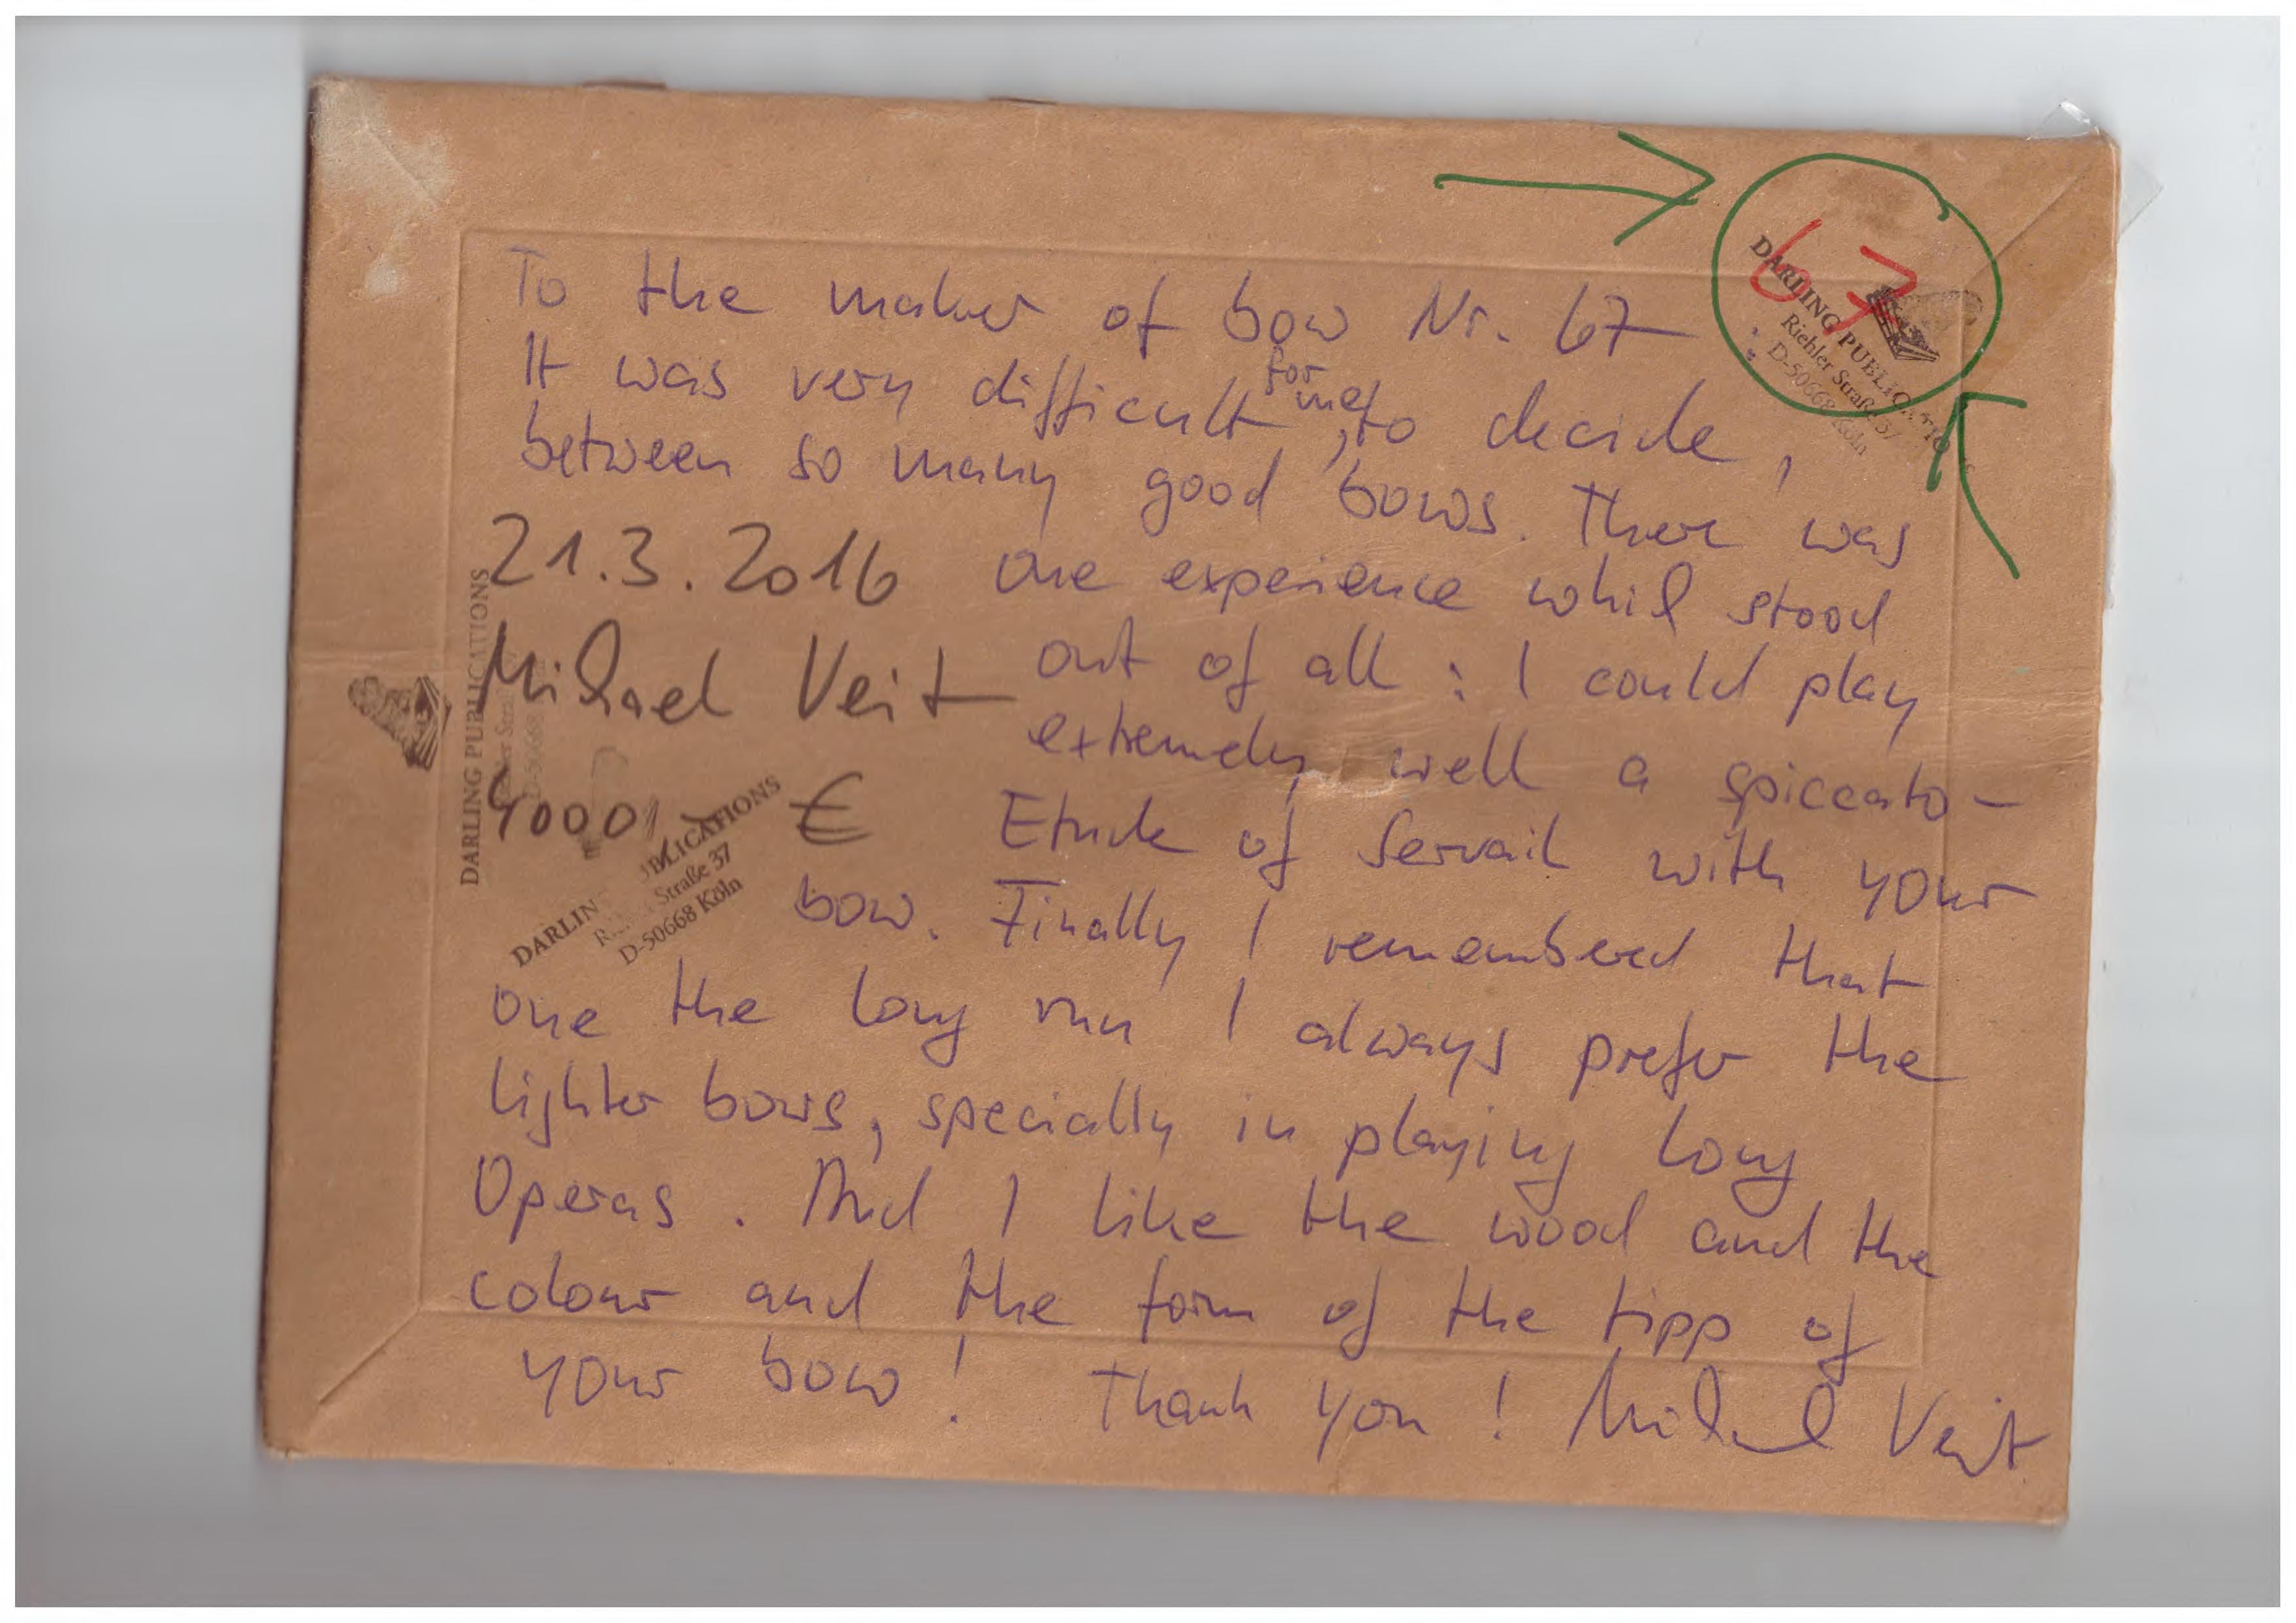 67
DARLING PUBLICATIONS
Riehler Straße 37
D-50668 Köln
To the maker of bow Nr. 67 :
It was very difficult for me, to decide,
between so many good bows. There was
21.3.2016 one experience which stood
Michael Veit out of all : I could play
extremely well a spiccato-
4000,- € Etude of Servais with your
bow. Finally I remembered that
one the long run I always prefer the
lighter bows, specially in playing long
Operas. And I like the wood and the
colour and the form of the tipp of
your bow! Thank you! Michael Veit
DARLING PUBLICATIONS
D-50668
DARLIN UBLICATIONS
Straße 37
D-50668 Köln